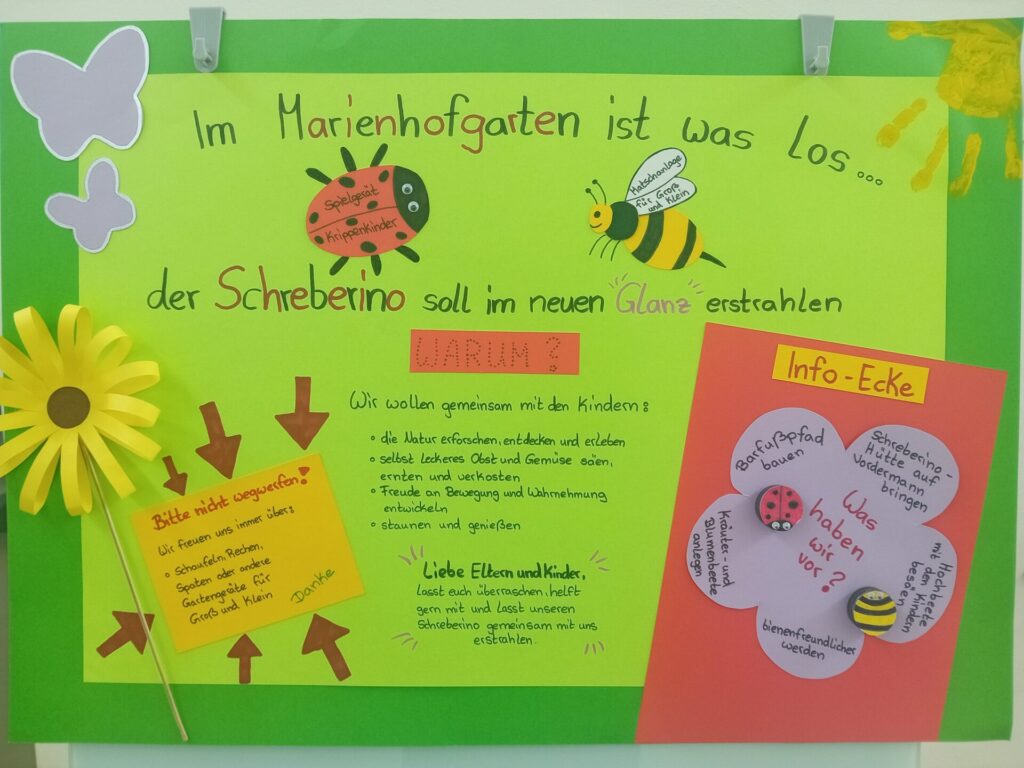 Im Marienhofgarten ist was los...
Spielgerät
Krippenkinder
Matschanlage
für Groß
und Klein
der Schreberino soll im neuen Glanz erstrahlen
WARUM?
Wir wollen gemeinsam mit den Kindern:
• die Natur erforschen, entdecken und erleben
• selbst leckeres Obst und Gemüse säen,
ernten und verkosten
• Freude an Bewegung und Wahrnehmung
entwickeln
• staunen und genießen
Liebe Eltern und Kinder,
lasst euch überraschen, helft
gern mit und lasst unseren
Schreberino gemeinsam mit uns
erstrahlen.
Bitte nicht wegwerfen!
Wir freuen uns immer über:
• Schaufeln, Rechen,
Spaten oder andere
Gartengeräte für
Groß und Klein
Danke
Info-Ecke
Barfußpfad
bauen
Schreberino-
Hütte auf
Vordermann
bringen
Was
haben
wir
vor?
Kräuter- und
Blumenbeete
anlegen
Hochbeete
mit den Kindern
besäen
bienenfreundlicher
werden